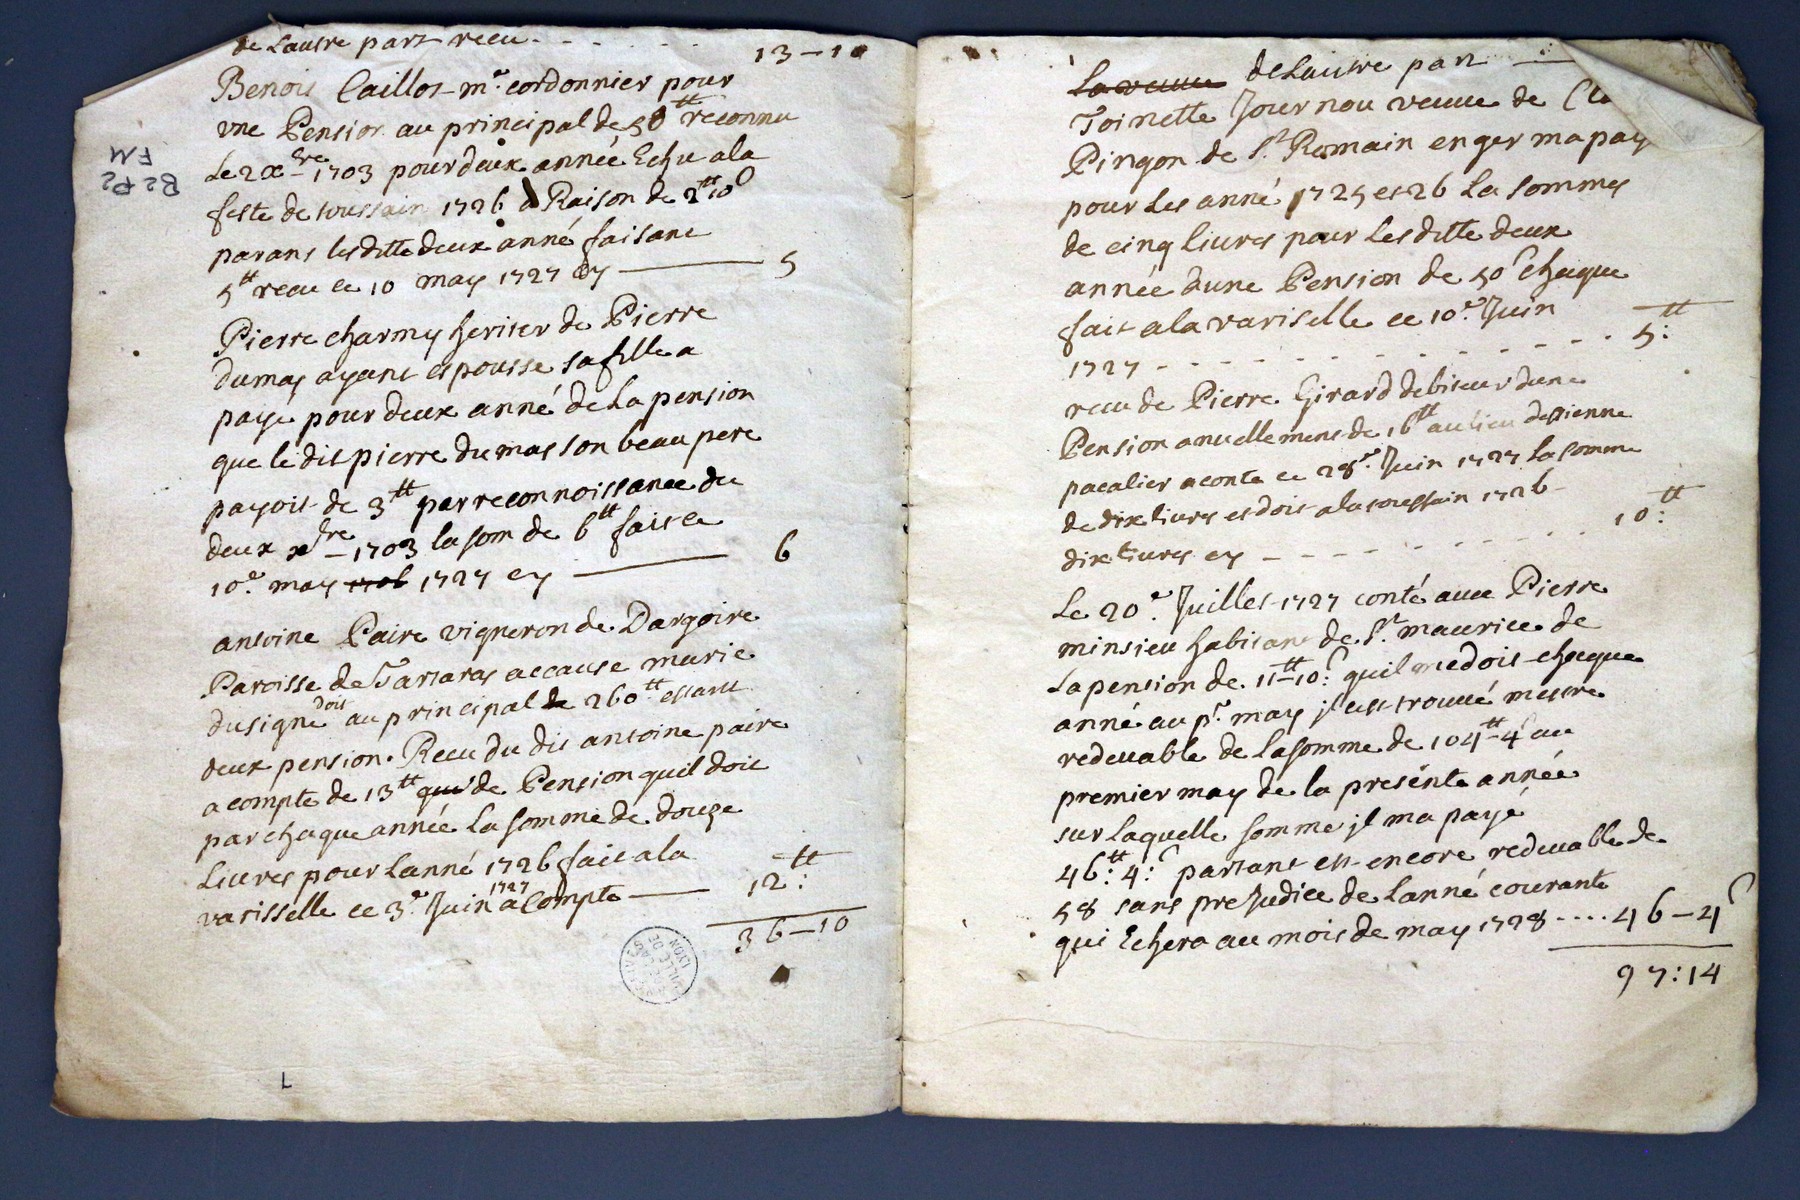 de Lautre part receu - - - - - 13-10
Benois Caillot m.e cordonnier pour
vne Pension au principal de 50 tt reconnu
Le 2 xbre 1703 pour deux année Echu ala
feste de toussain 1726 a Raison de 2tt 10s
par ans lesditte deux anné faisant
5tt receu ce 10 may 1727 Cy ——— 5
Pierre charmy heritier de Pierre
dumas ayant espousse sa fille a
payé pour deux anné de La pension
que le dit pierre dumas son beau pere
payoit de 3tt par reconnoissance du
deux xbre - 1703 la som de 6tt fait ce
10.e may 1706 1727 cy ——— 6
antoine Paire vigneron de Dargoire
Paroisse de Tartaras accause marie
du signe doit au principal de 260tt estant
deux pension. Receu du dit antoine paire
a compte de 13tt que de Pension quil doit
par chaque année La somme de douze
Liures pour Lanné 1726 fait ala
varisselle ce 3.e Juin 1727 a Compte ——— 12:tt
36-10
ARCHIVES
VILLE DE
LYON
L
B2 P2
FM
La veuue de Lautre part ———
Toinette Journou veuue de Cla
Pingon de St Romain en ger ma pay
pour Les anné 1725 et 26 La sommes
de cinq liures pour Lesditte deux
année dune Pension de 50s chaque
fait ala variselle ce 10.e Juin
1727 - - - - - - - - - 5:tt
receu de Pierre Girard debiteur dune
Pension anuellement de 16tt au lieu destienne
pacalier a conte ce 28.e Juin 1727 La somme
de dix liures et doit ala toussain 1726
dix Liures cy - - - - - - - 10:tt
Le 20.e Juillet 1727 conté auec Pierre
minsieu habitant de St maurice de
La pension de 11tt-10:s quil me doit chaque
anné au pr. may jl cest trouué mestre
redeuable de La somme de 104tt-4s au
premier may de la presente année
sur Laquelle somme jl ma payé
46:tt 4:s partant est encore redeuable de
58 sans preJudice de Lanné courante
qui Echera au mois de may 1728 .... 46-4s
97:14